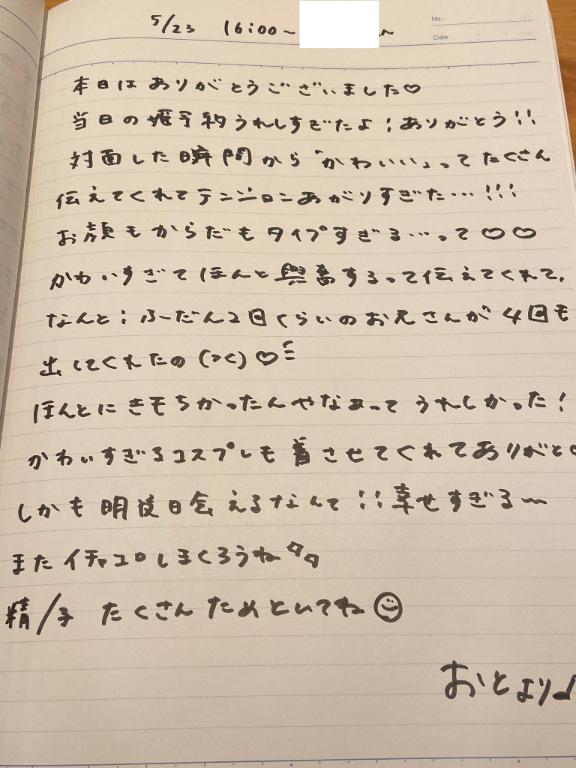 5/23 16:00~
No.
Date
本日はありがとうございました♡
当日の姫予約うれしすぎたよ!ありがとう!!
対面した瞬間から「かわいい」ってたくさん
伝えてくれてテンションあがりすぎた…!!!
お顔もからだもタイプすぎる…って♡♡
かわいすぎてほんと興奮するって伝えてくれて、
なんと!ふーだん2回くらいのお兄さんが4回も
出してくれたの(><)♡
ほんとにきもちかったんやなぁってうれしかった!
かわいすぎるコスプレも着させてくれてありがと♡
しかも明後日会えるなんて!!幸せすぎる〜
またイチャコロしまくろうね
精/子 たくさんためといてね☺
おとより♪